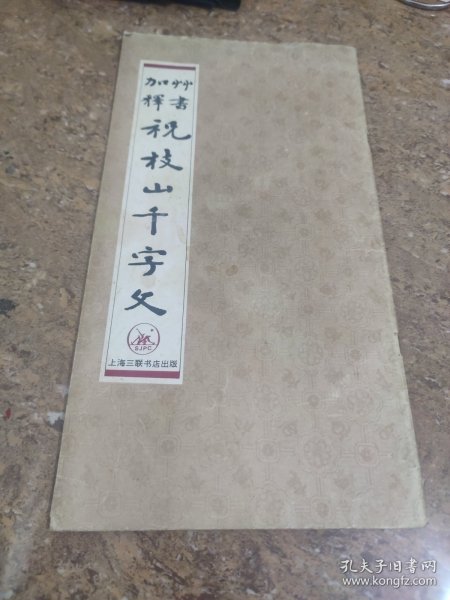 艸書
加释
祝枝山千字文
SJPC
上海三联书店出版
孔夫子旧书网
www.kongfz.com